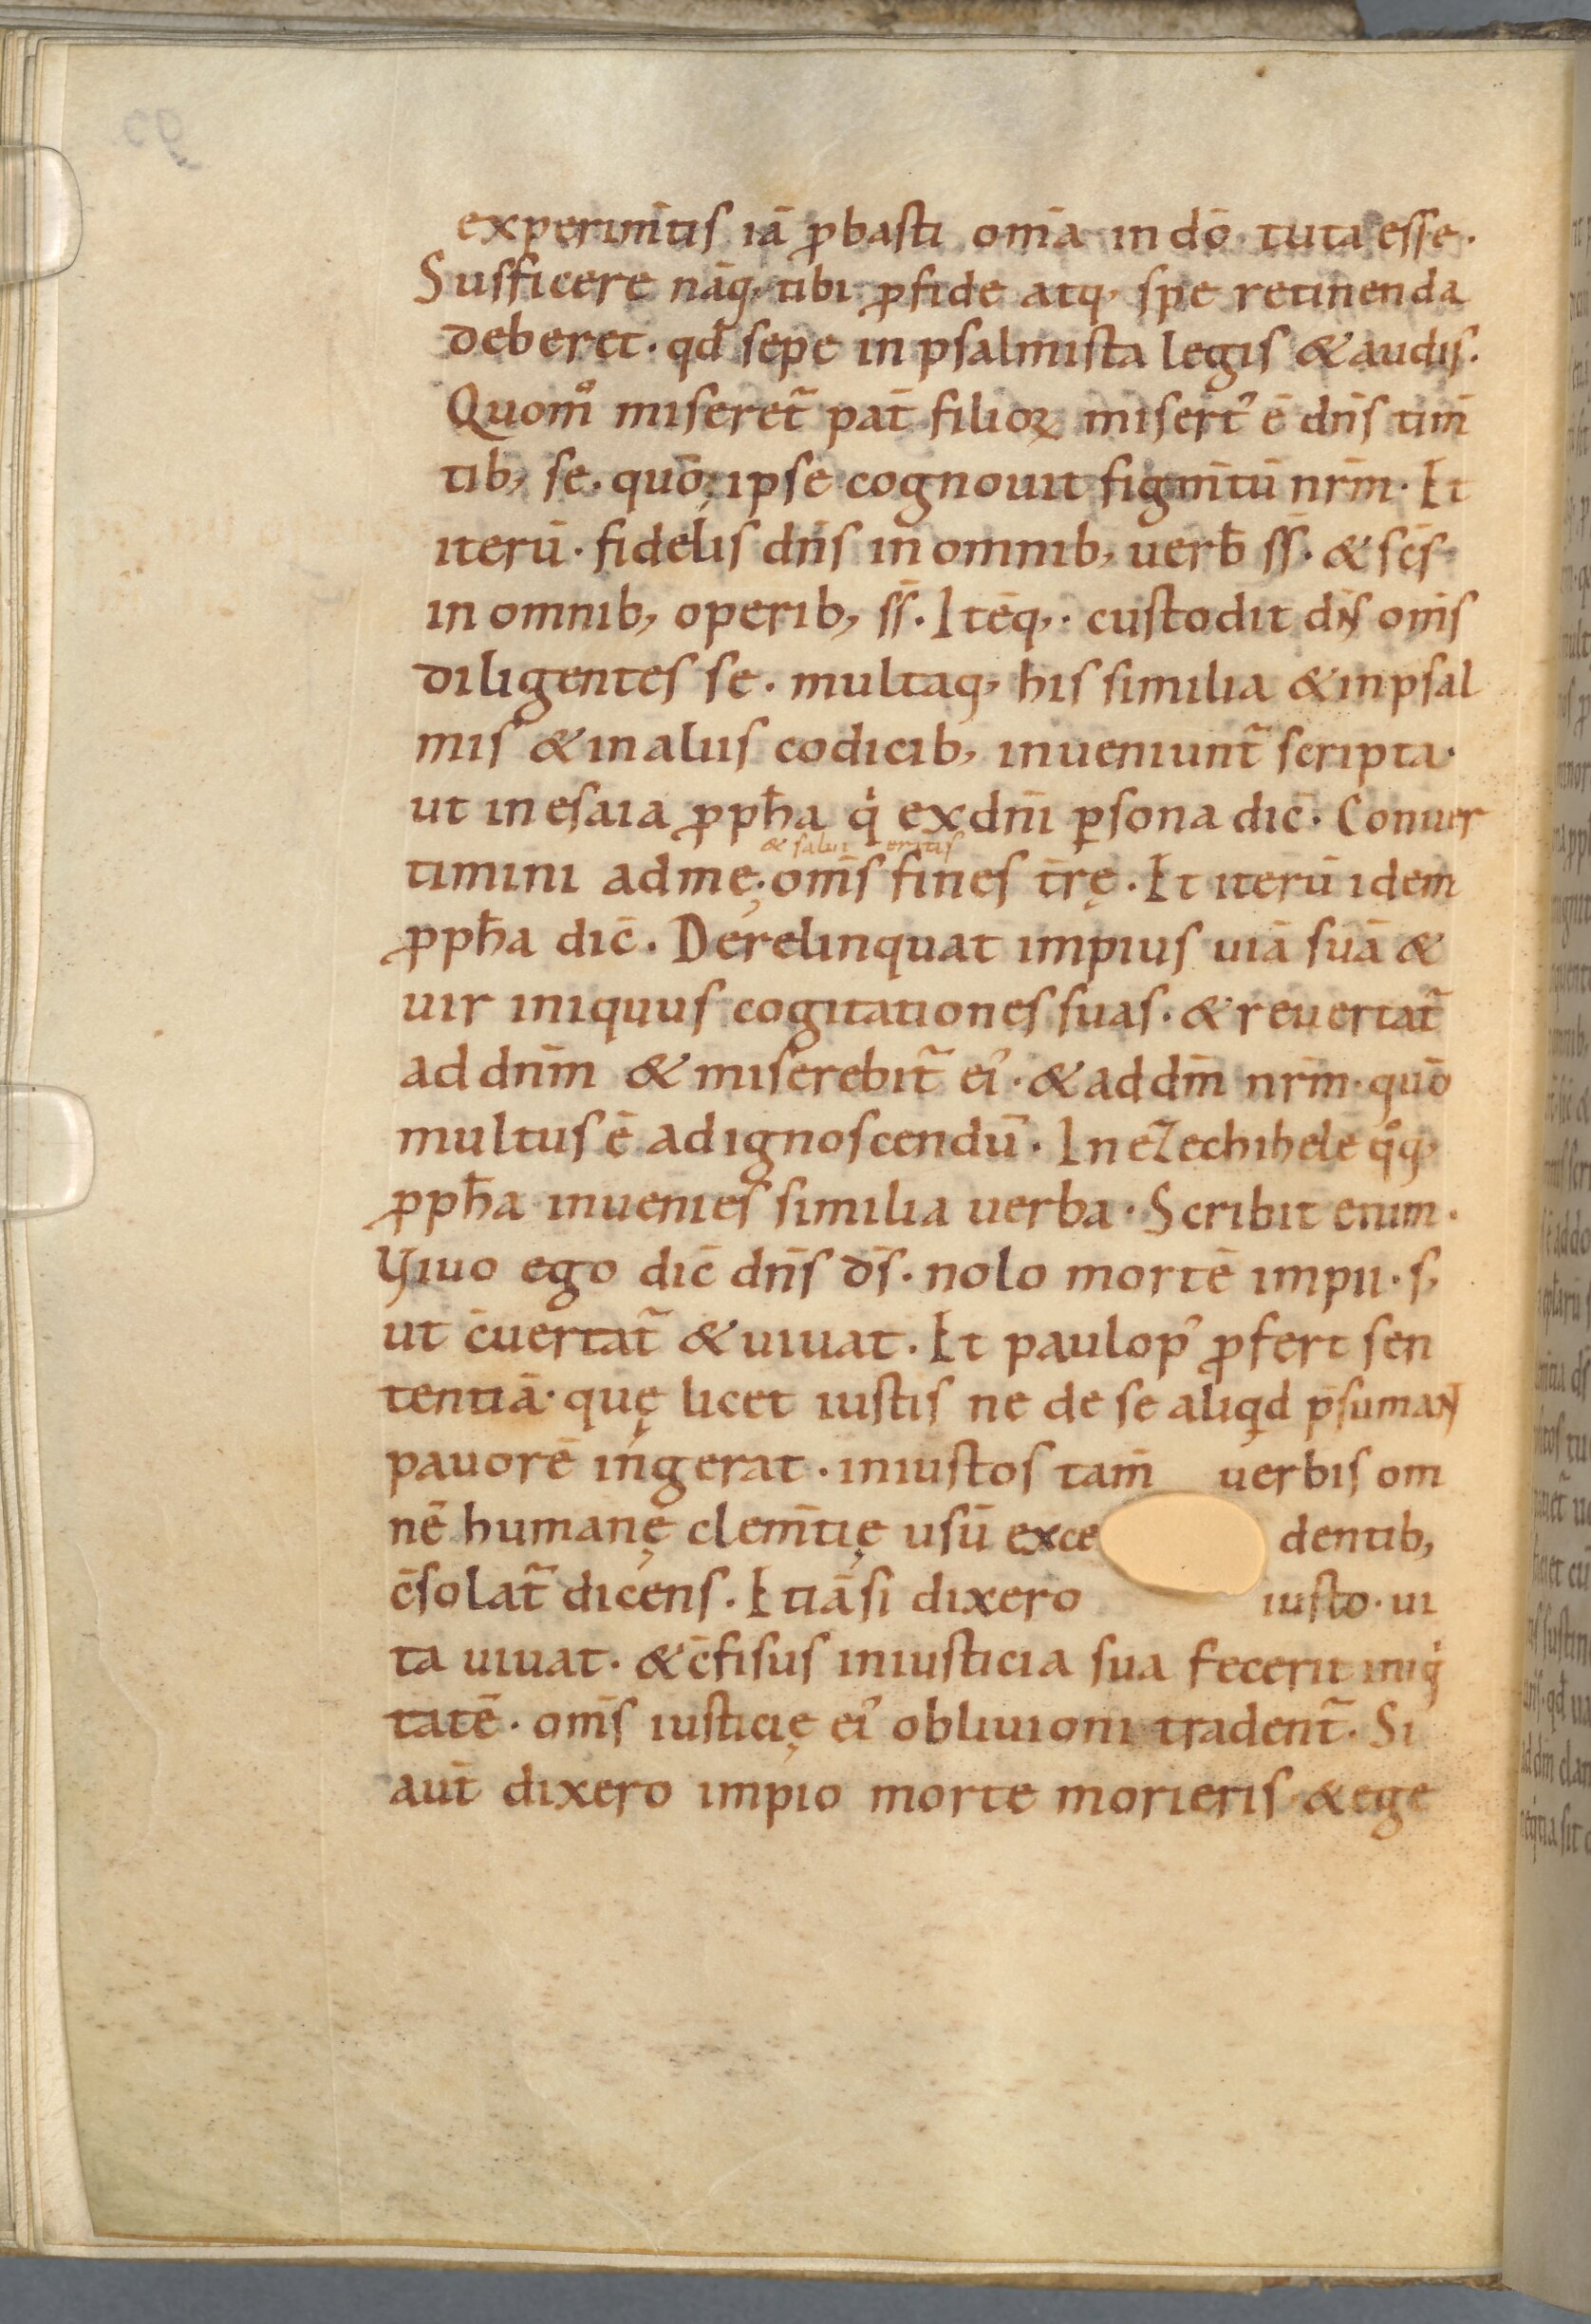 experim̄tis iā ꝓbasti om̄a in dō tuta esse.
Sufficere nāq; tibi ꝓ fide atq; spe retinenda
deberet. qđ sepe in psalmista legis & audis.
Quom̊ miseret᷑ pat̄ filioꝝ misert᷒ ē dn̄s tim̄
tib; se. quō ipse cognouit figm̄tū nr̄m. Et
iterū. fidelis dn̄s in omnib; uerb̄ ss̄. & sc̄s
in omnib; operib; ss̄. Itēq;. custodit dn̄s om̄s
diligentes se. multaq; his similia & in psal
mis & in aliis codicib; inueniunt᷑ scripta.
ut in esaia ꝓph̄a qͥ ex dn̄i ꝑsona dic̄. Conuer
& salui eritis
timini ad me. om̄s fines tr̄ę. Et iterū idem
ꝓph̄a dic̄. Derelinquat impius uiā suā &
uir iniquus cogitationes suas. & reuertat᷑
ad dn̄m & miserebit᷑ ei᷒. & ad dm̄ nr̄m. quō
multus ē ad ignoscendū. In ezechihele qͦq;
ꝓph̄a inuenies similia uerba. Scribit enim.
Viuo ego dic̄ dn̄s ds̄. nolo mortē impii. s;
ut c̄uertat᷑ & uiuat. Et paulop᷒ ꝓfert sen
tentiā. quę licet iustis ne de se aliqͥd p̄sumant
pauorē ingerat. iniustos tam̄ uerbis om
nē humanę clem̄tię usū exce dentib;
c̄solat᷑ dicens. Etiā si dixero iusto. ui
ta uiuat. & c̄fisus in iusticia sua fecerit iniqͥ
tatē. om̄s iusticię ei᷒ obliuioni tradent᷑. Si
aut̄ dixero impio morte morieris & ege